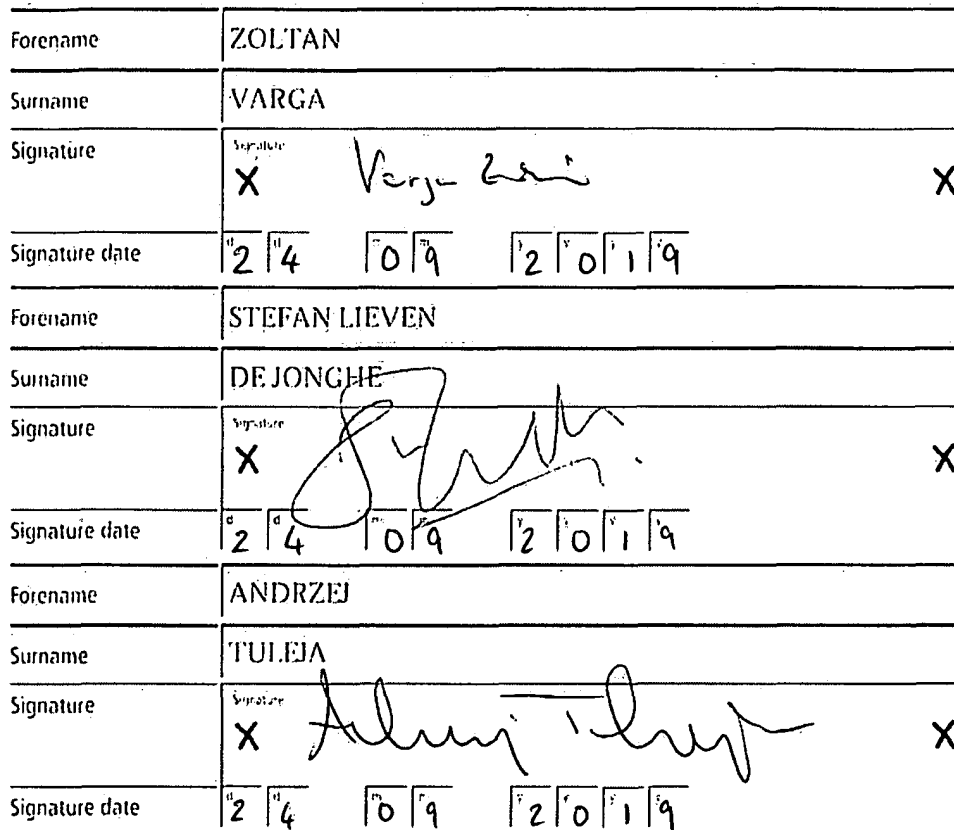 Forename ZOLTAN
Surname VARGA
Signature Signature X Varga X
Signature date d2 d4 m0 m9 y2 y0 y1 y9
Forename STEFAN LIEVEN
Surname DE JONGHE
Signature Signature X X
Signature date d2 d4 m0 m9 y2 y0 y1 y9
Forename ANDRZEJ
Surname TULEJA
Signature Signature X X
Signature date d2 d4 m0 m9 y2 y0 y1 y9